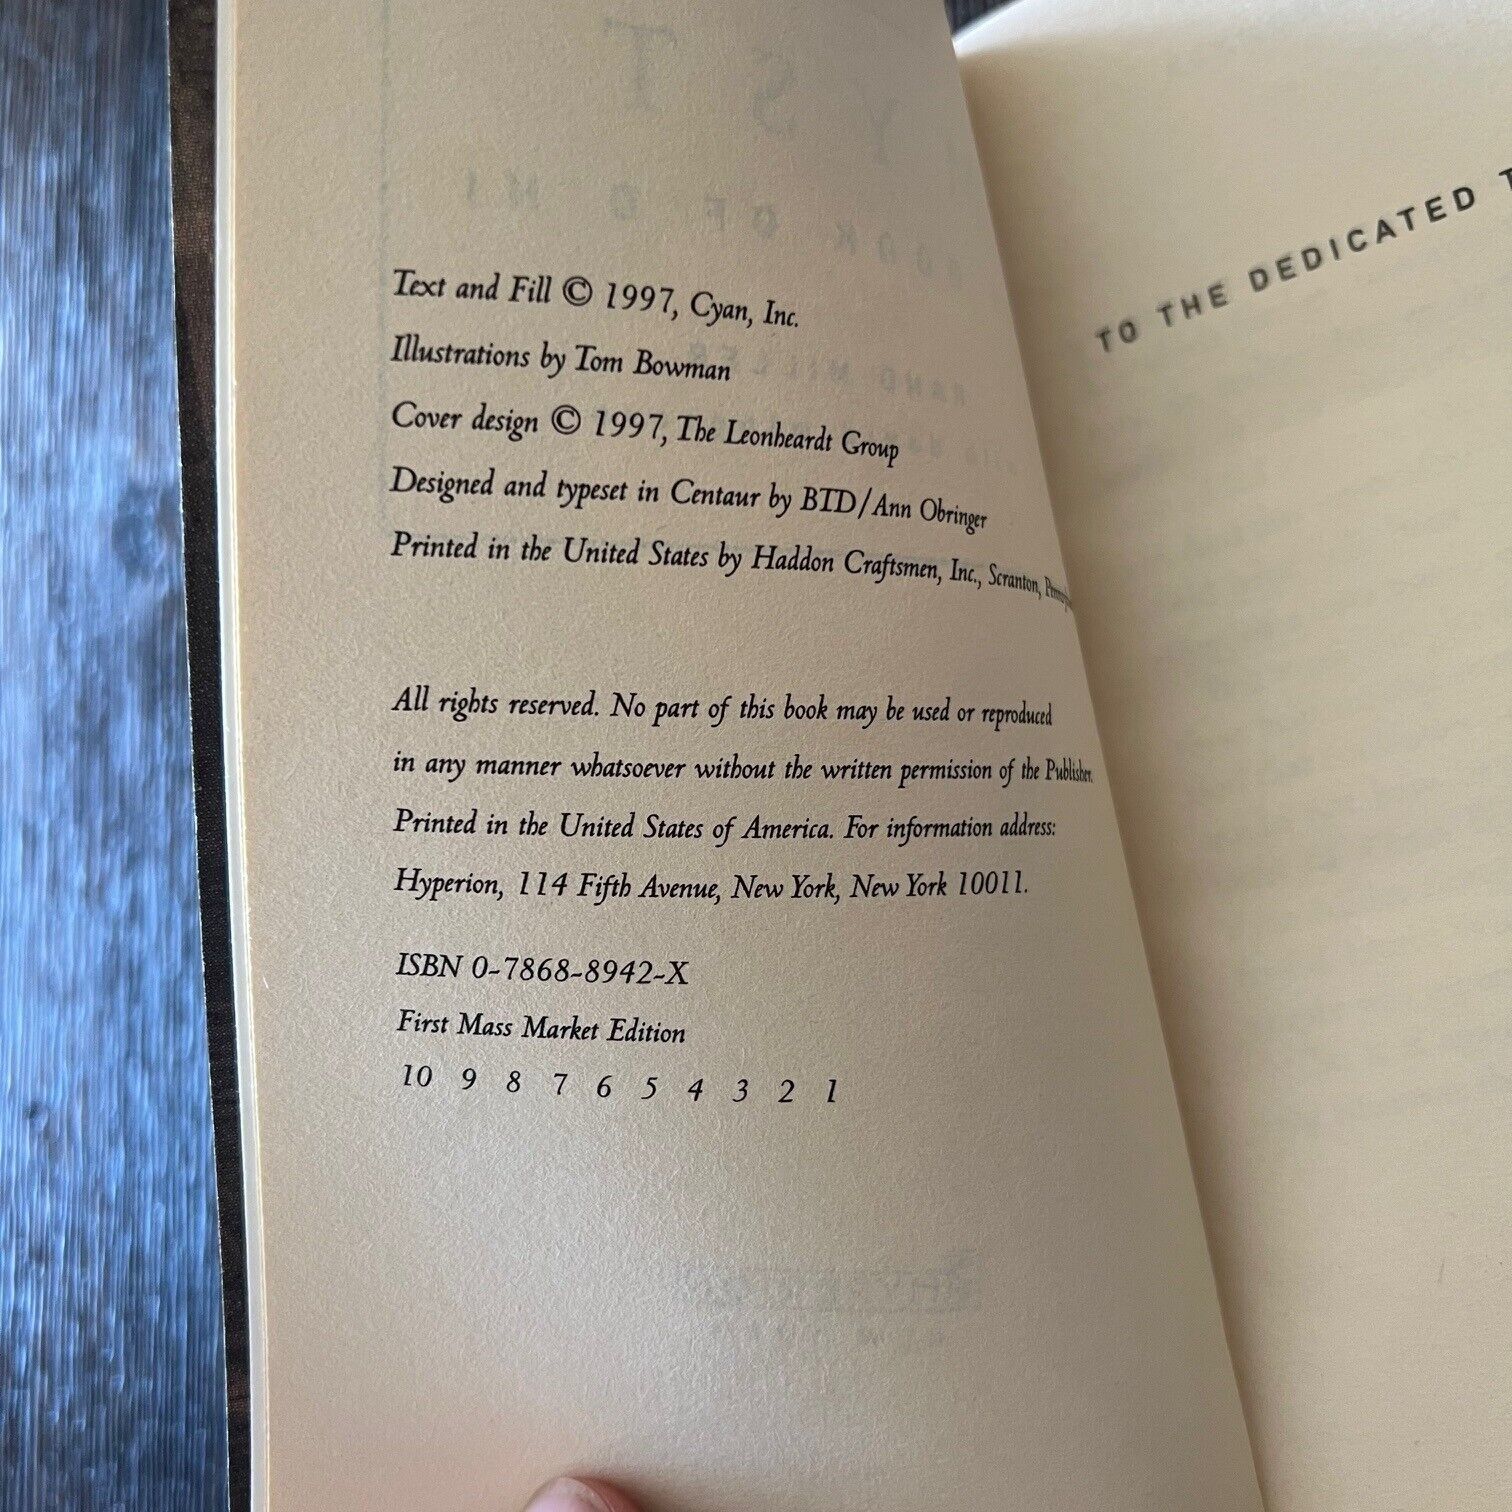 Text and Fill © 1997, Cyan, Inc.
Illustrations by Tom Bowman
Cover design © 1997, The Leonheardt Group
Designed and typeset in Centaur by BTD/Ann Obringer
Printed in the United States by Haddon Craftsmen, Inc., Scranton,
All rights reserved. No part of this book may be used or reproduced
in any manner whatsoever without the written permission of the Publisher.
Printed in the United States of America. For information address:
Hyperion, 114 Fifth Avenue, New York, New York 10011.
ISBN 0-7868-8942-X
First Mass Market Edition
10 9 8 7 6 5 4 3 2 1
TO THE DEDICATED T